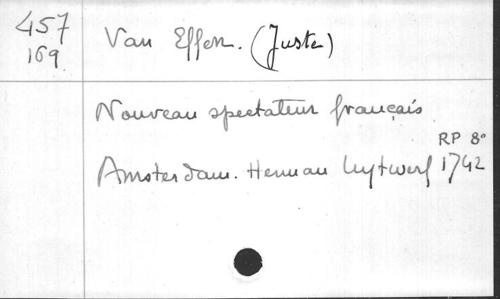 457
169
Van Effen. (Juste)
Nouveau spectateur français
RP 8°
Amsterdam. Herman Uytwerf 1742